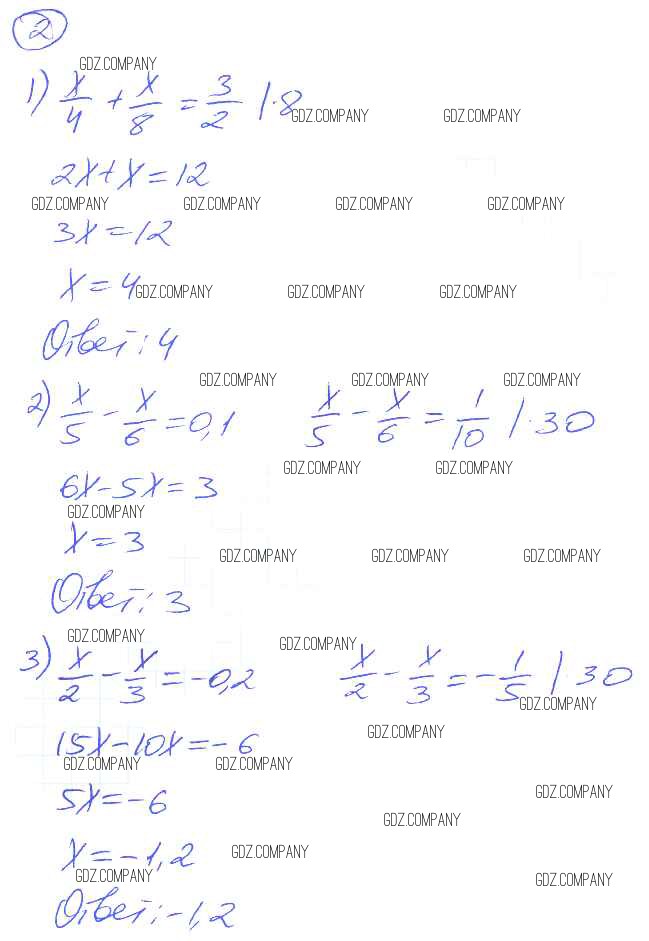 2
GDZ.COMPANY
1) x/4 + x/8 = 3/2 | · 8
GDZ.COMPANY GDZ.COMPANY
2x + x = 12
GDZ.COMPANY GDZ.COMPANY GDZ.COMPANY GDZ.COMPANY
3x = 12
x = 4
GDZ.COMPANY GDZ.COMPANY GDZ.COMPANY
Ответ: 4
GDZ.COMPANY GDZ.COMPANY GDZ.COMPANY
2) x/5 - x/6 = 0,1 x/5 - x/6 = 1/10 | · 30
GDZ.COMPANY GDZ.COMPANY
6x - 5x = 3
GDZ.COMPANY
x = 3
GDZ.COMPANY GDZ.COMPANY GDZ.COMPANY
Ответ: 3
GDZ.COMPANY GDZ.COMPANY
3) x/2 - x/3 = -0,2 x/2 - x/3 = -1/5 | · 30
GDZ.COMPANY
GDZ.COMPANY
15x - 10x = -6
GDZ.COMPANY GDZ.COMPANY
5x = -6
GDZ.COMPANY
GDZ.COMPANY
x = -1,2
GDZ.COMPANY
GDZ.COMPANY GDZ.COMPANY
Ответ: -1,2